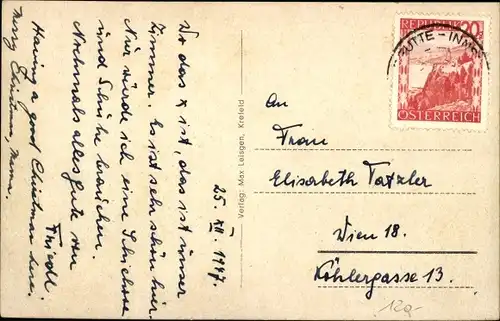 Wo das X ist, das ist unser
Zimmer. Es ist sehr schön hier.
Nur würde ich eine Schihose
und Schuhe brauchen.
Nochmals alles gute von
Friedl.
Having a good Christmas here.
Merry Christmas, Mama.
25. XII. 1947.
Verlag: Max Leisgen, Krefeld
REPUBLIK 20
ÖSTERREICH
HÜTTE - INN
An
Frau
Elisabeth Tatzler
Wien 18.
Köhlergasse 13.